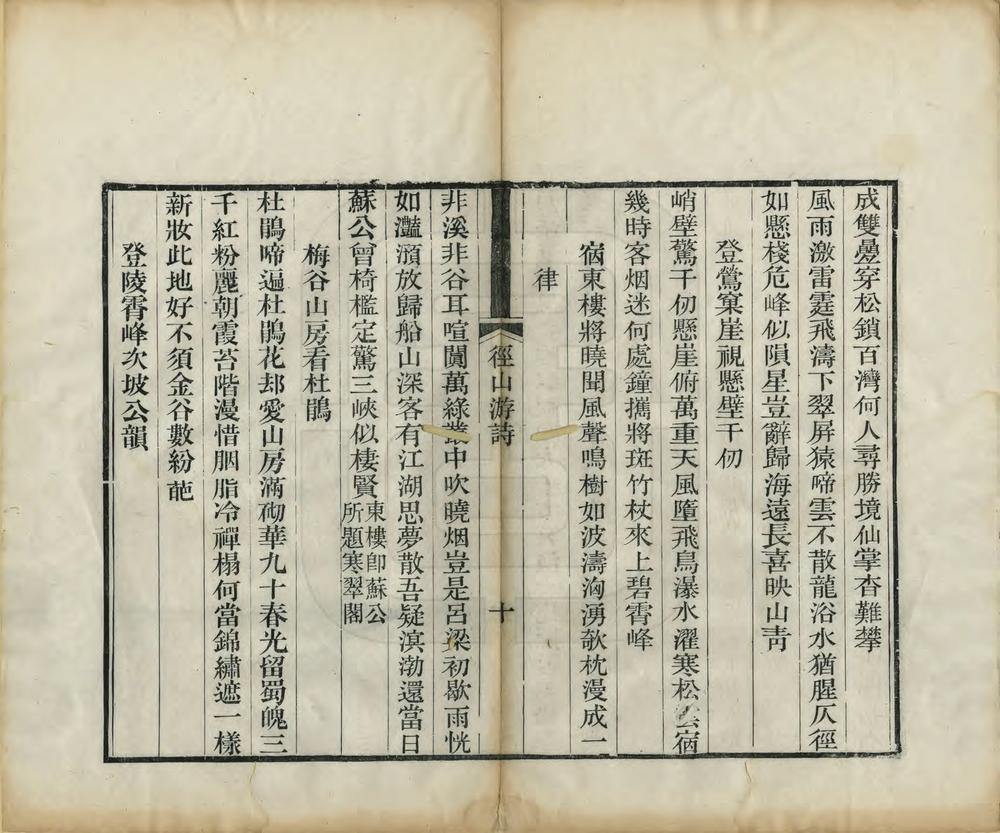 成雙邊穿松鎖百灣何人尋勝境仙掌杳難攀
風雨激雷霆飛濤下翠屏猿啼雲不散龍浴水猶腥仄徑
如懸棧危峰似隕星豈辭歸海遠長喜映山靑
登鶯窠崖視懸壁千仞
峭壁驚千仞懸崖俯萬重天風墮飛鳥瀑水濯寒松雲宿
幾時客烟迷何處鐘攜將斑竹杖來上碧霄峰
宿東樓將曉聞風聲鳴樹如波濤洶湧欹枕漫成一
律
徑山游詩
十
非溪非谷耳喧闐萬綠叢中吹曉烟豈是呂梁初歇雨恍
如灩澦放歸船山深客有江湖思夢散吾疑溟渤還當日
蘇公曾椅檻定驚三峽似棲賢東樓卽蘇公
所題寒翠閣
梅谷山房看杜鵑
杜鵑啼遍杜鵑花却愛山房滿砌華九十春光留蜀魄三
千紅粉麗朝霞苔階漫惜胭脂冷禪榻何當錦繡遮一樣
新妝此地好不須金谷數紛葩
登陵霄峰次坡公韻